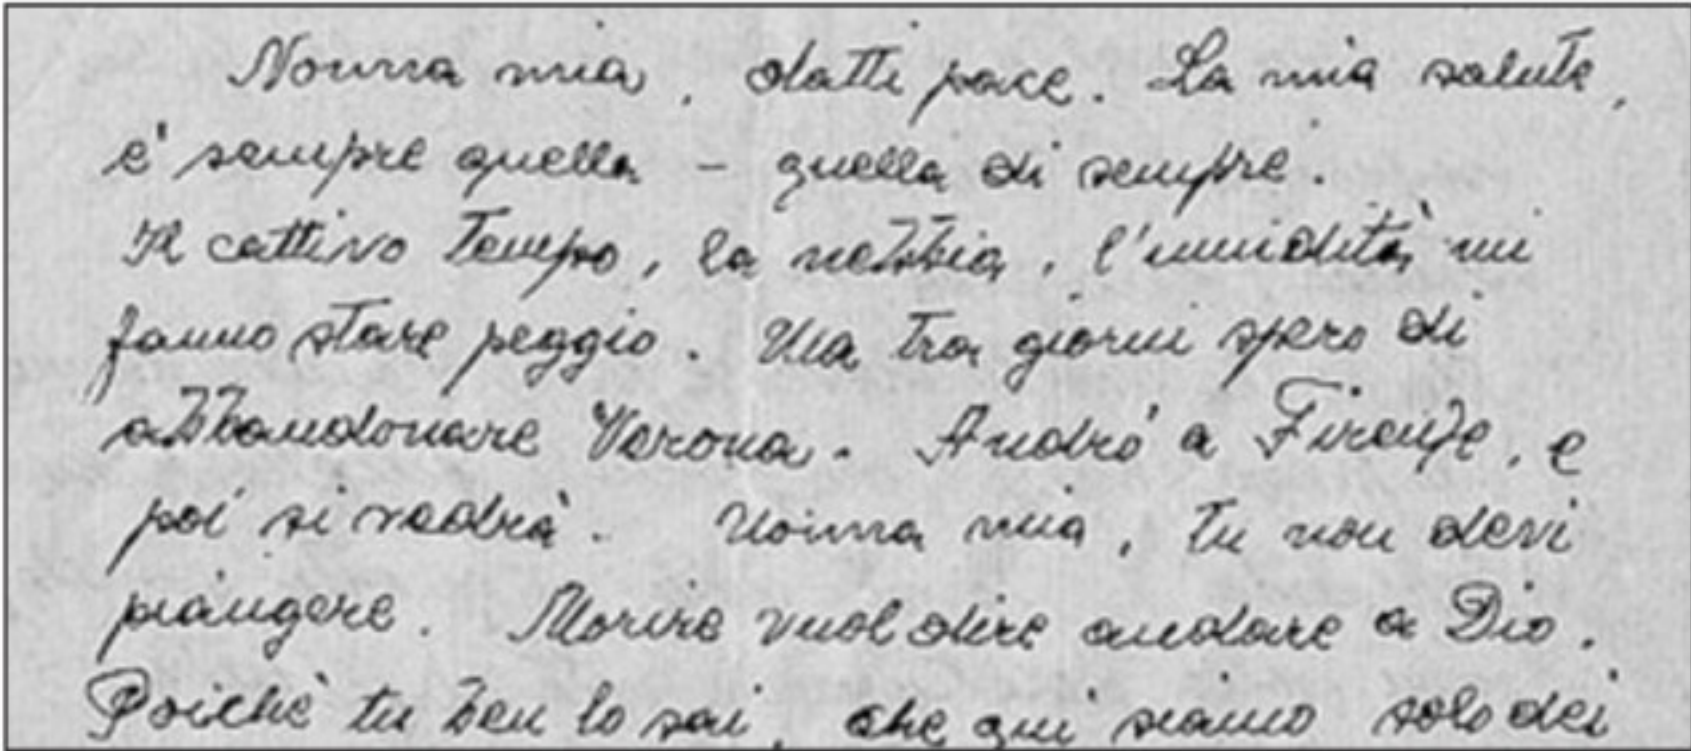 Nonna mia, datti pace. La mia salute,
è sempre quella - quella di sempre.
Il cattivo tempo, la nebbia, l'umidità mi
fanno stare peggio. Ma tra giorni spero di
abbandonare Verona. Andrò a Firenze, e
poi si vedrà. Nonna mia, tu non devi
piangere. Morire vuol dire andare a Dio.
Poichè tu ben lo sai, che qui siamo solo dei